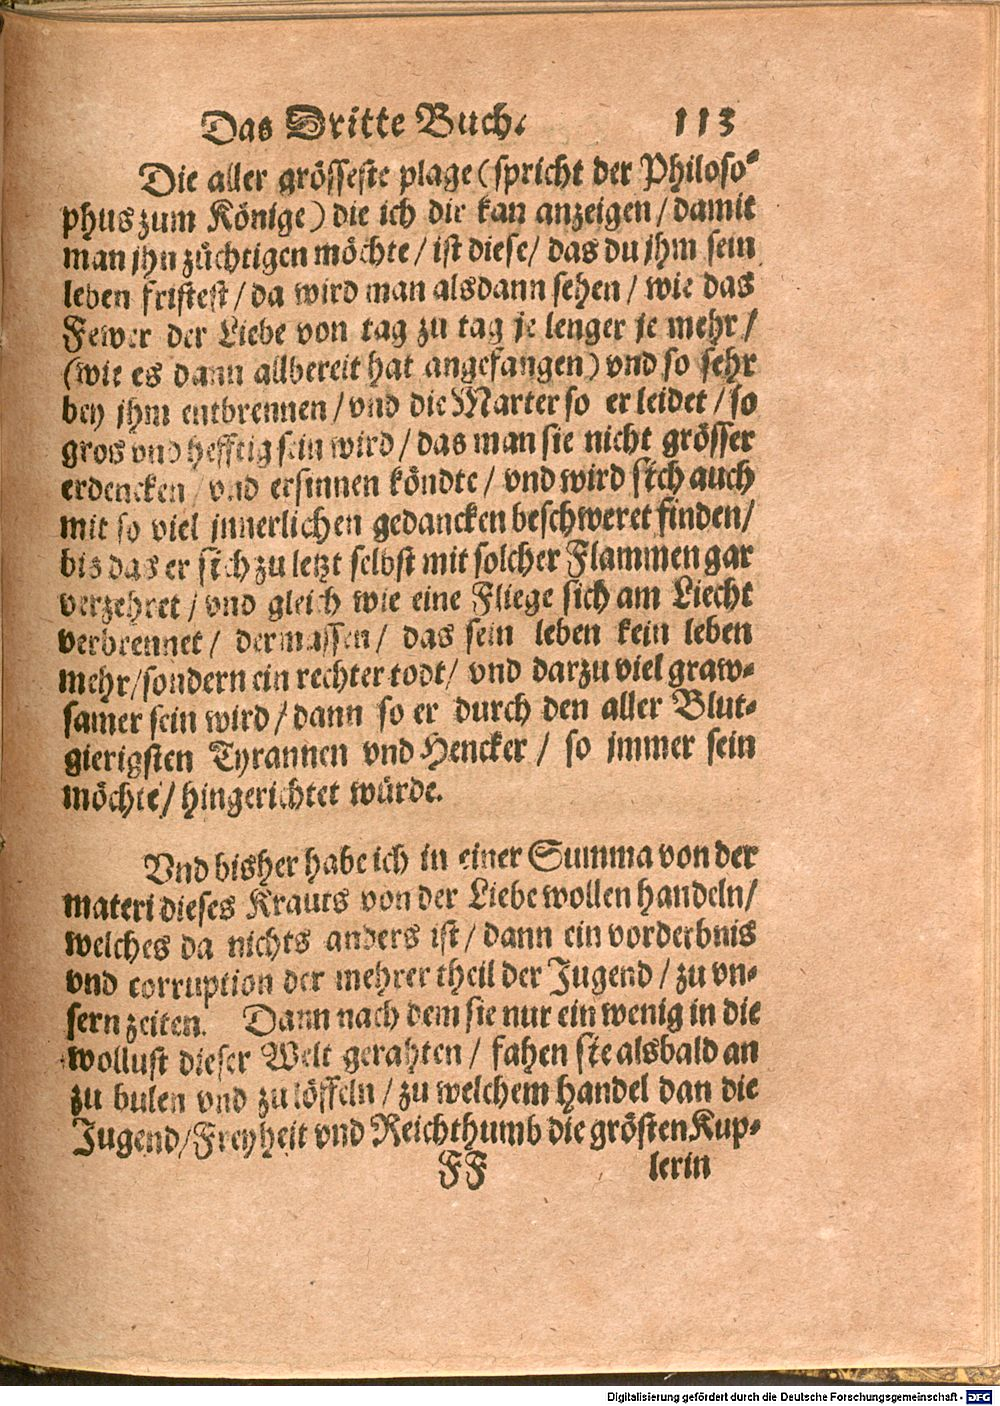 Das Dritte Buch. 113
Die aller grösseste plage (spricht der Philoso-
phus zum Könige) die ich dir kan anzeigen / damit
man jhn züchtigen möchte / ist diese / das du jhm sein
leben fristest / da wird man alsdann sehen / wie das
Fewer der Liebe von tag zu tag je lenger je mehr /
(wie es dann allbereit hat angefangen) vnd so sehr
bey jhm entbrennen / vnd die Marter so er leidet / so
gros vnd hefftig sein wird / das man sie nicht grösser
erdencken / vnd ersinnen köndte / vnd wird sich auch
mit so viel jnnerlichen gedancken beschweret finden /
bis das er sich zu letzt selbst mit solcher Flammen gar
verzehret / vnd gleich wie eine Fliege sich am Liecht
verbrennet / dermassen / das sein leben kein leben
mehr / sondern ein rechter todt / vnd darzu viel graw-
samer sein wird / dann so er durch den aller Blut-
gierigsten Tyrannen vnd Hencker / so jmmer sein
möchte / hingerichtet würde.
Vnd bisher habe ich in einer Summa von der
materi dieses Krauts von der Liebe wollen handeln /
welches da nichts anders ist / dann ein vorderbnis
vnd corruption der mehrer theil der Jugend / zu vn-
sern zeiten. Dann nach dem sie nur ein wenig in die
wollust dieser Welt gerahten / fahen sie alsbald an
zu bulen vnd zu löffeln / zu welchem handel dan die
Jugend / Freyheit vnd Reichthumb die grösten Kup-
FF lerin
Digitalisierung gefördert durch die Deutsche Forschungsgemeinschaft - DFG